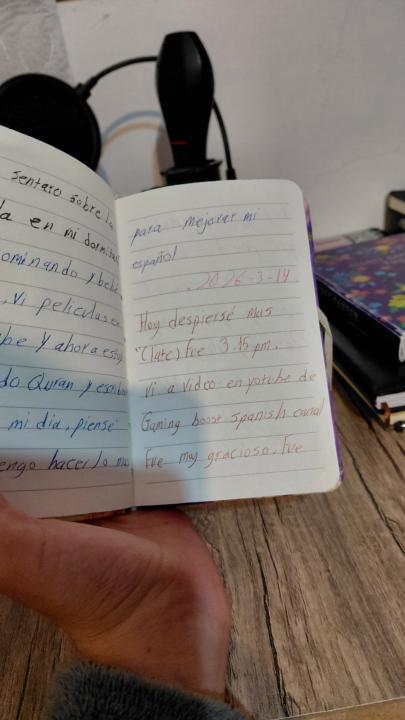 sentaro sobre la
da en mi dormito
ominando y bebe
. Vi peliculas e
be y ahora estoy
do Quran y escribo
mi dia, piense
engo hacerlo mas
para mejorar mi
español
.2026-3-14
Hoy despiersé mas
(late) fue 3.15 pm.
vi a video en yotube de
Gaming boost spanish canal
Fue muy gracioso. Fue